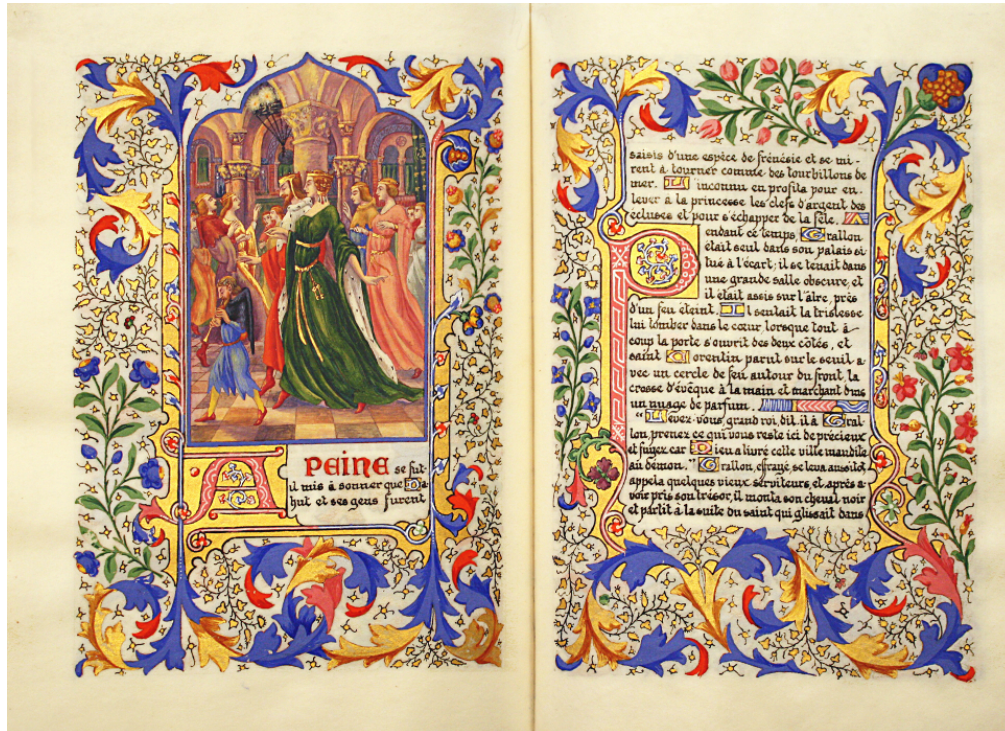 A PEINE se fut-
il mis à sonner que Da-
hut et ses gens furent
saisis d'une espèce de frénésie et se mi-
rent à tourner comme des tourbillons de
mer. L' inconnu en profita pour en-
lever à la princesse les clefs d'argent des
écluses et pour s'échapper de la fête.
Pendant ce temps, Grallon
était seul dans son palais si
tué à l'écart; il se tenait dans
une grande salle obscure, et
il était assis sur l'âtre, près
d'un feu éteint. Il sentait la tristesse
lui tomber dans le cœur lorsque tout à
coup la porte s'ouvrit des deux côtés, et
saint Corentin parut sur le seuil a-
vec un cercle de feu autour du front, la
crosse d'évêque à la main et marchant dans
un nuage de parfum.
"Levez-vous, grand roi, dit-il à Gral-
lon, prenez ce qui vous reste ici de précieux
et fuyez car Dieu a livré cette ville maudite
au démon." Grallon, effrayé, se leva aussitôt,
appela quelques vieux serviteurs, et après a-
voir pris son trésor, il monta son cheval noir
et partit à la suite du saint qui glissait dans